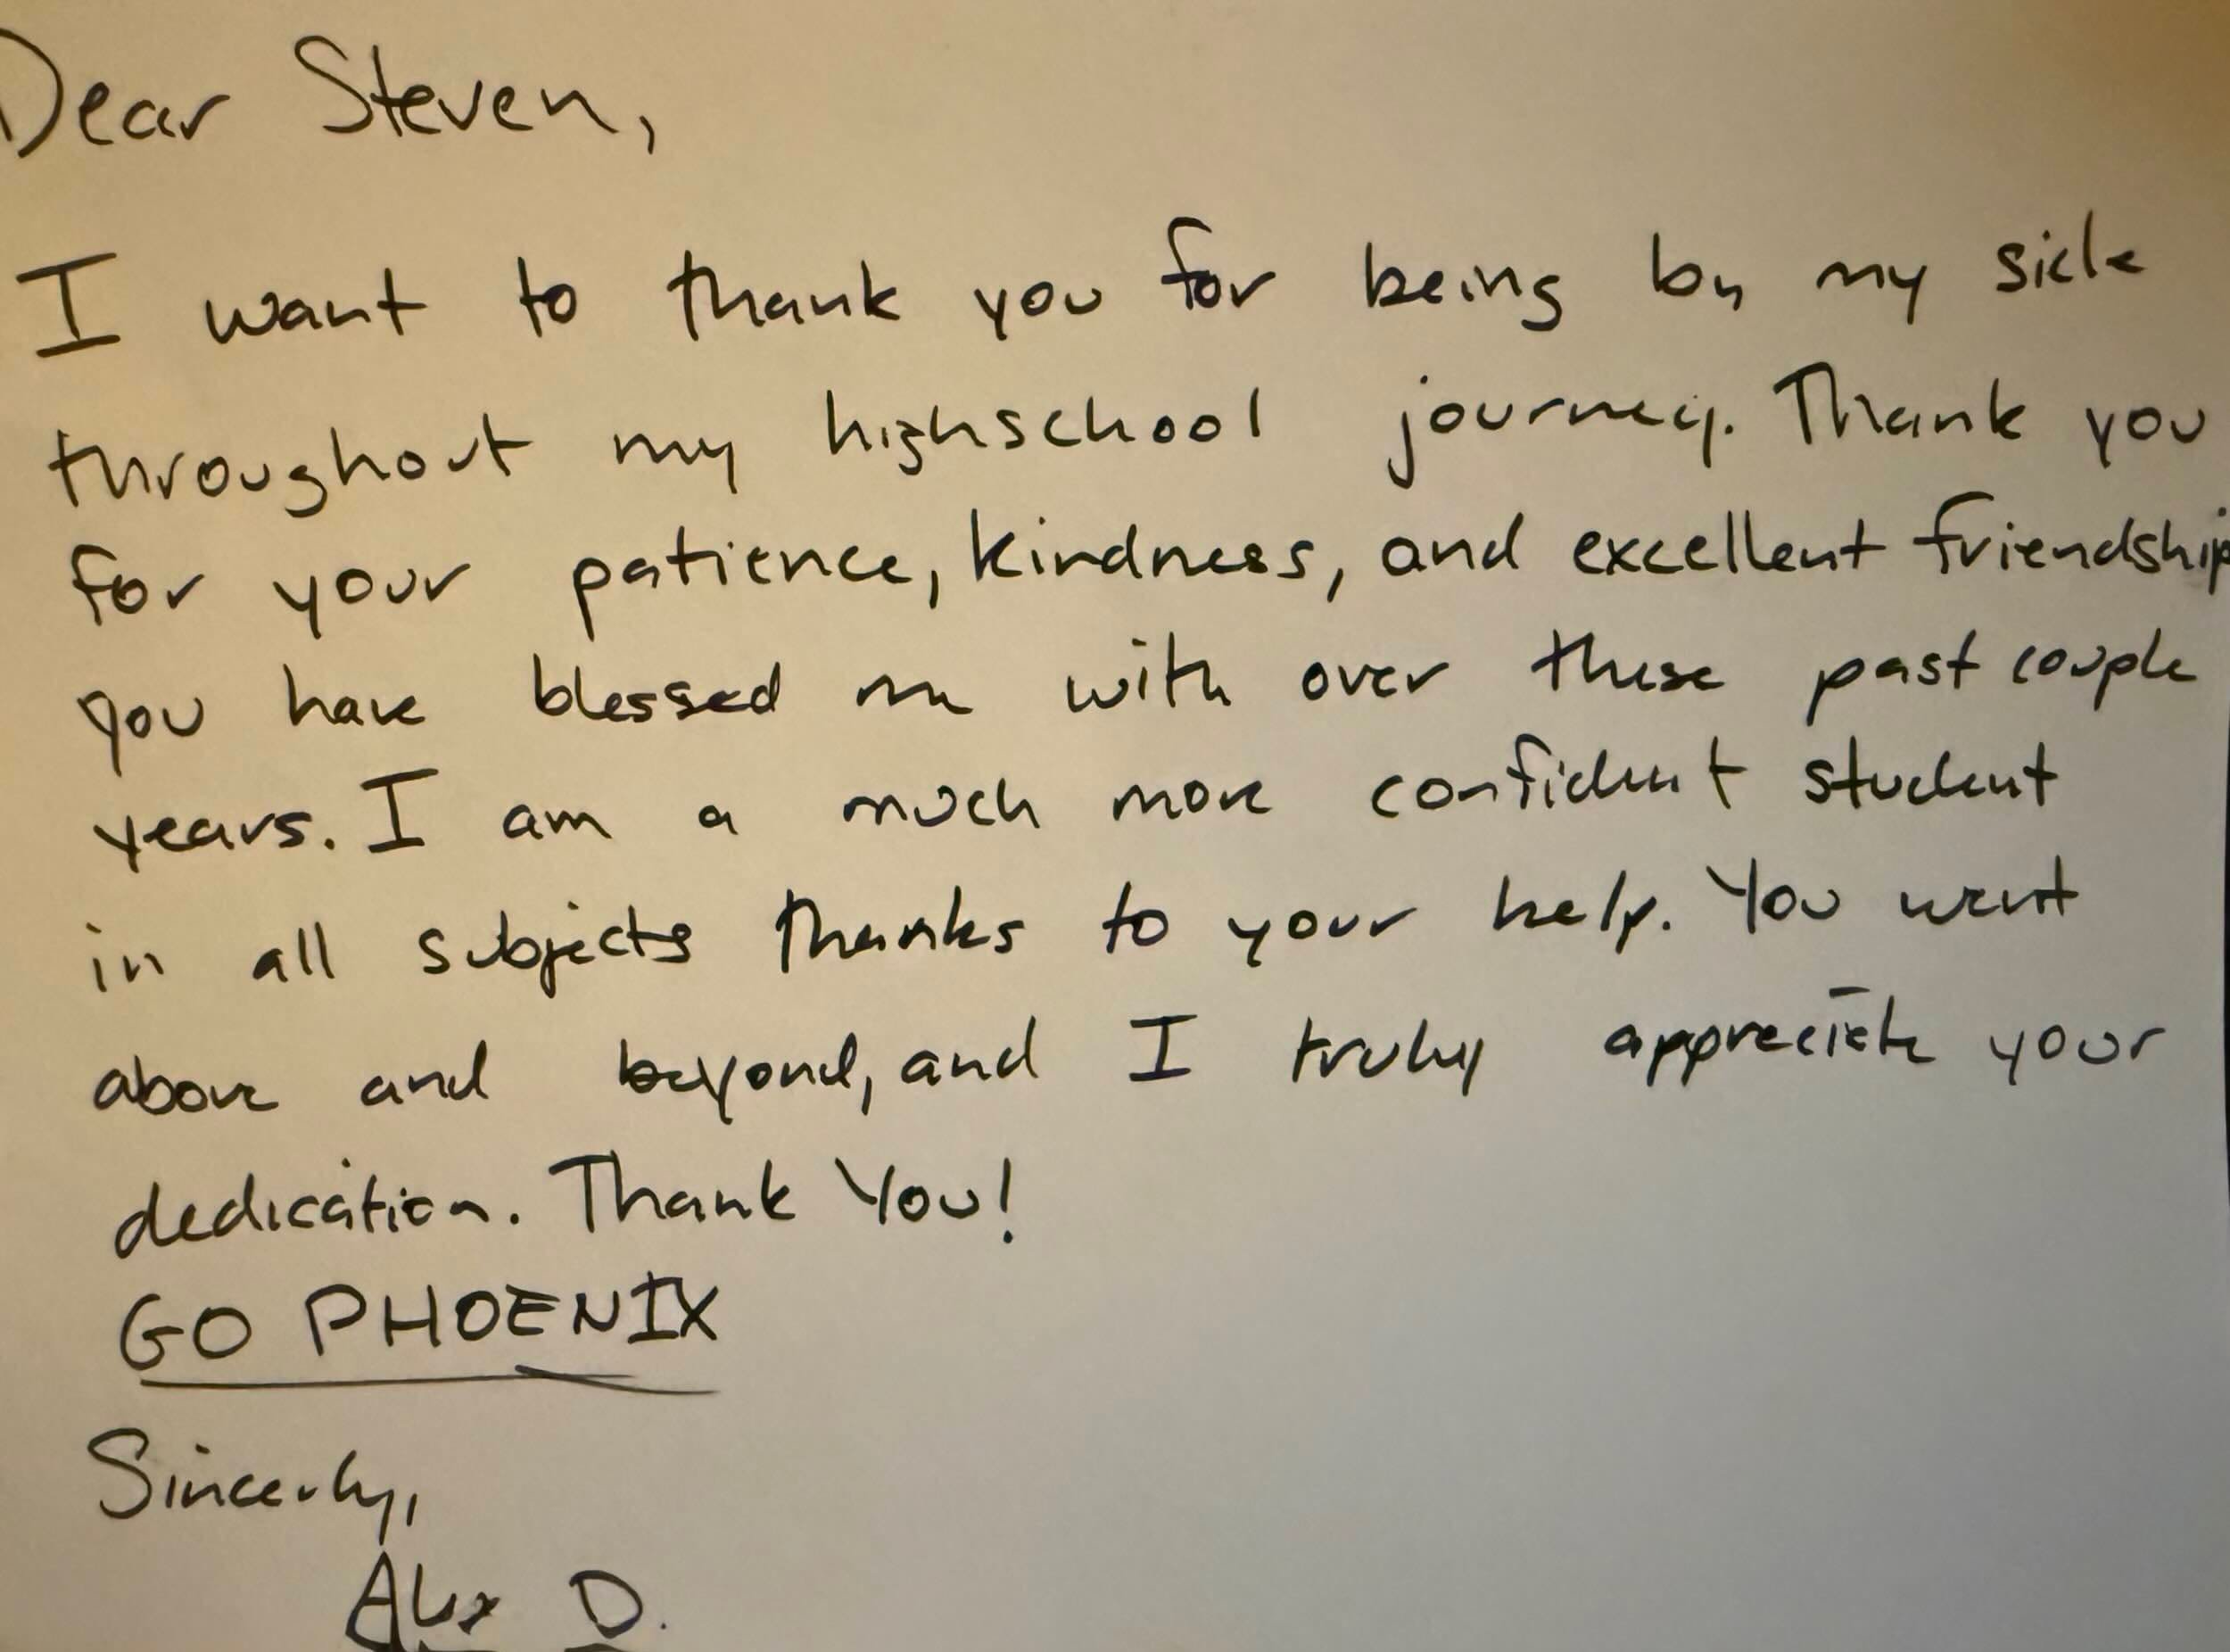 Dear Steven,
I want to thank you for being by my side
throughout my highschool journey. Thank you
for your patience, kindness, and excellent friendship
you have blessed me with over these past couple
years. I am a much more confident student
in all subjects thanks to your help. You went
above and beyond, and I truly appreciate your
dedication. Thank You!
GO PHOENIX
Sincerly,
Alex D.